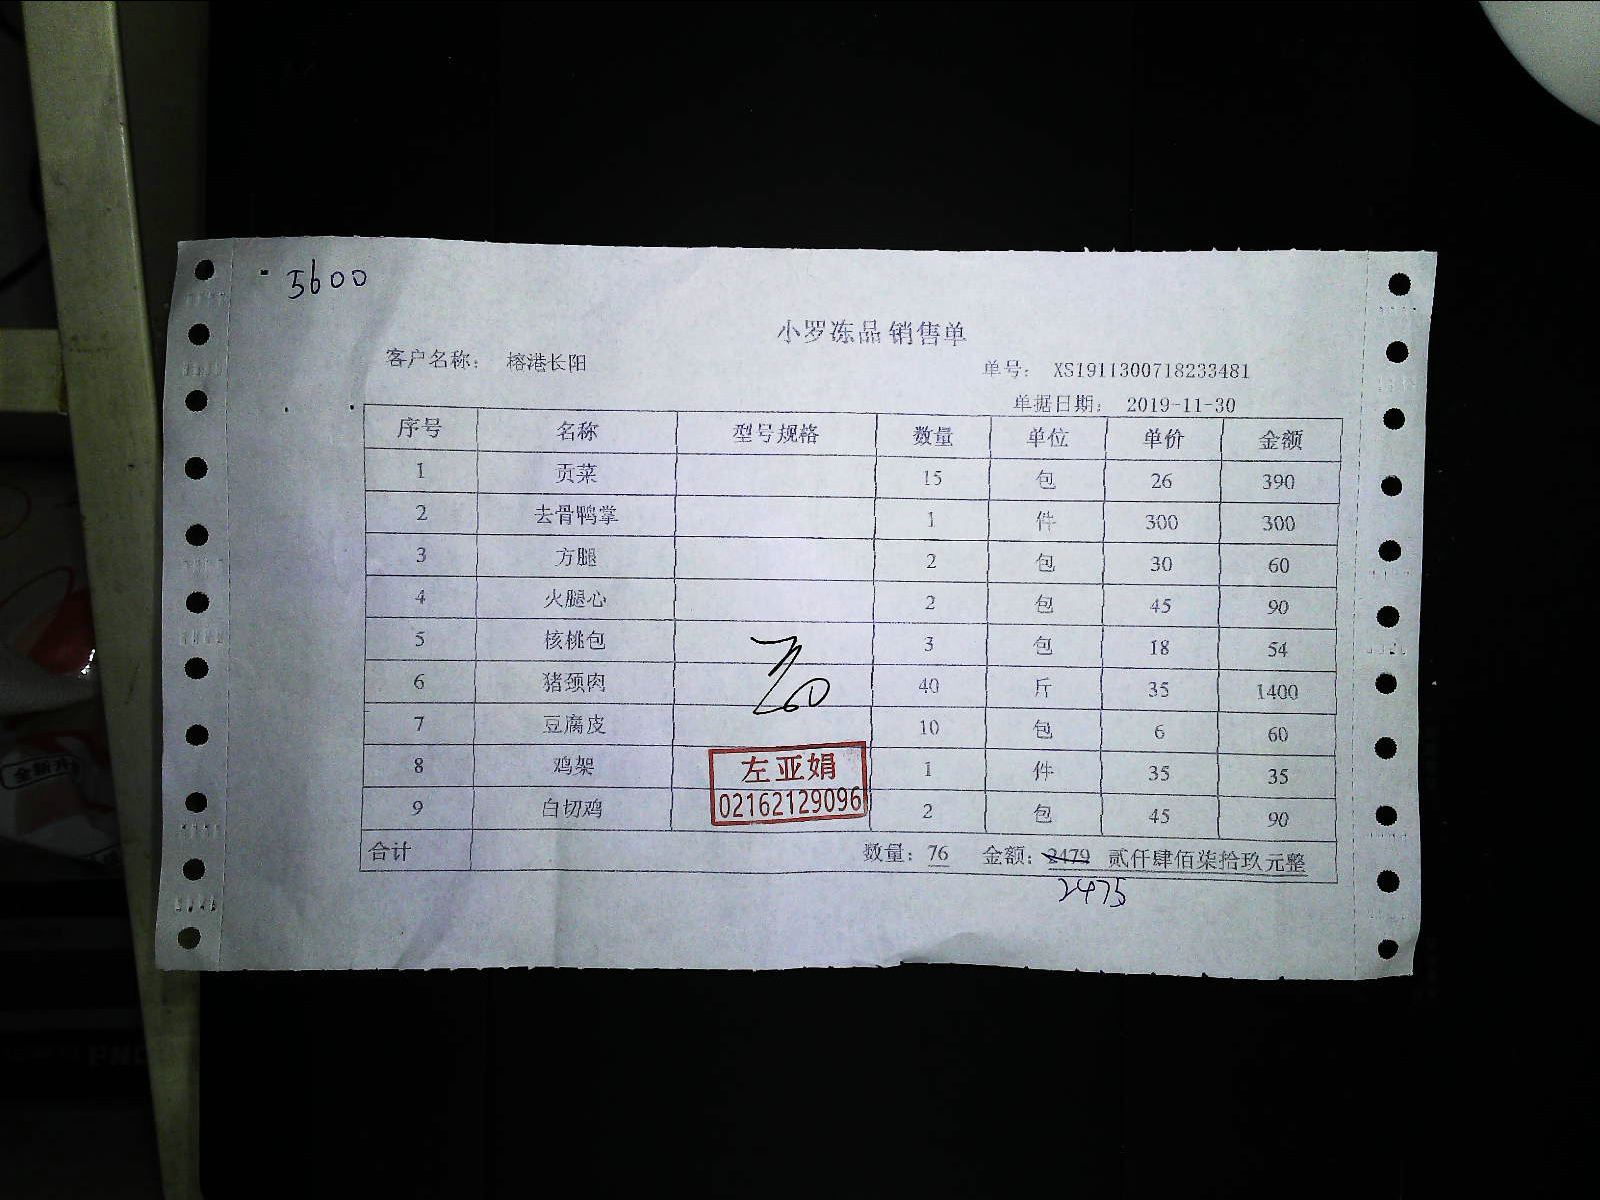 5600
小罗冻品 销售单
客户名称： 榕港长阳
单号： XS1911300718233481
单据日期： 2019-11-30
序号 名称 型号规格 数量 单位 单价 金额
1 贡菜 15 包 26 390
2 去骨鸭掌 1 件 300 300
3 方腿 2 包 30 60
4 火腿心 2 包 45 90
5 核桃包 3 包 18 54
6 猪颈肉 40 斤 35 1400
7 豆腐皮 10 包 6 60
8 鸡架 1 件 35 35
9 白切鸡 2 包 45 90
左亚娟
02162129096
合计 数量：76 金额：2479 贰仟肆佰柒拾玖元整
2475